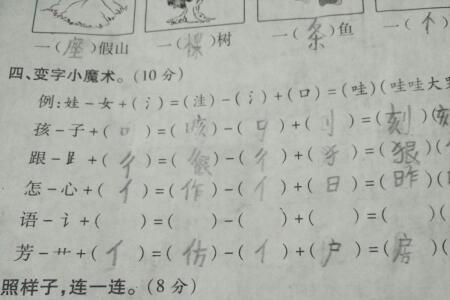 一(座)假山 一(棵)树 一(条)鱼 一(个)
四、变字小魔术。(10分)
例:娃-女+(氵)=(洼)-(氵)+(口)=(哇)(哇哇大哭
孩-子+(口)=(咳)-(口)+(刂)=(刻)(刻
跟-⻊+(彳)=(很)-(彳)+(犭)=(狠)(
怎-心+(亻)=(作)-(亻)+(日)=(昨)(
语-讠+( )=( )-( )+( )=( )(
芳-艹+(亻)=(仿)-(亻)+(户)=(房)(
照样子,连一连。(8分)